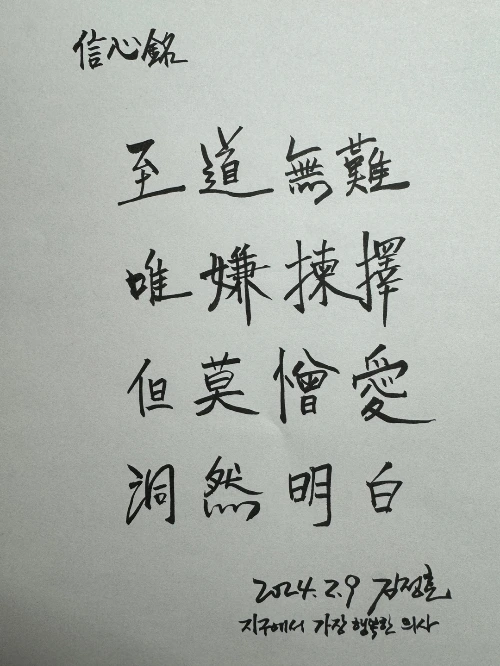 信心銘
至道無難
唯嫌揀擇
但莫憎愛
洞然明白
2024.2.9 김정호
지구에서 가장 행복한 의사